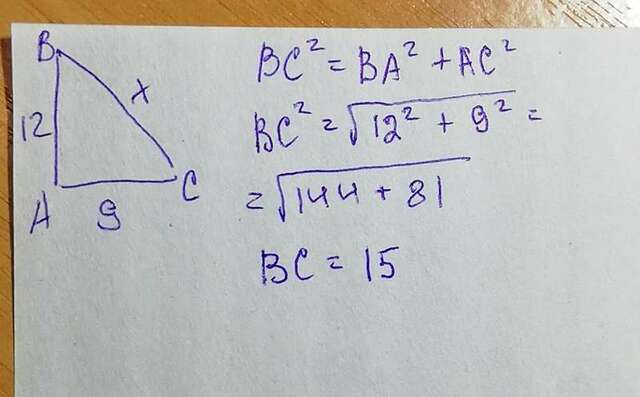 B
12
x
A
9
C
BC² = BA² + AC²
BC² = √12² + 9² =
= √144 + 81
BC = 15